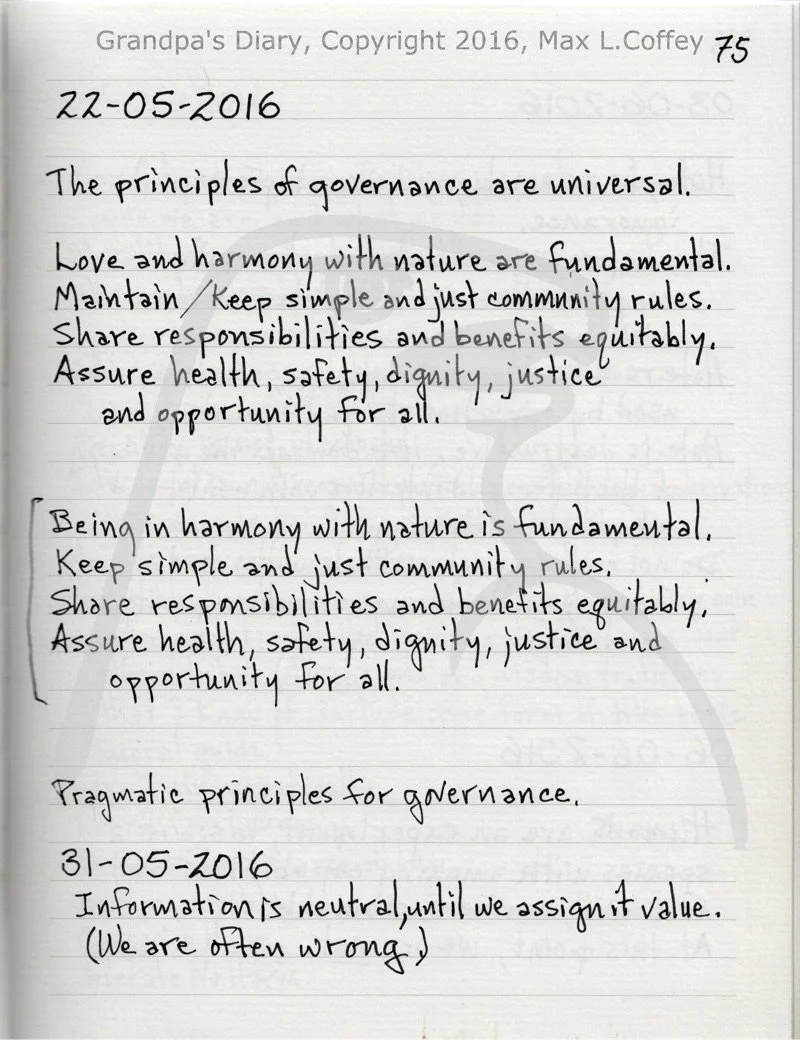 Grandpa's Diary, Copyright 2016, Max L.Coffey 75
22-05-2016
The principles of governance are universal.
Love and harmony with nature are fundamental.
Maintain/Keep simple and just community rules.
Share responsibilities and benefits equitably.
Assure health, safety, dignity, justice
and opportunity for all.
Being in harmony with nature is fundamental.
Keep simple and just community rules.
Share responsibilities and benefits equitably.
Assure health, safety, dignity, justice and
opportunity for all.
Pragmatic principles for governance.
31-05-2016
Information is neutral, until we assign it value.
(We are often wrong.)